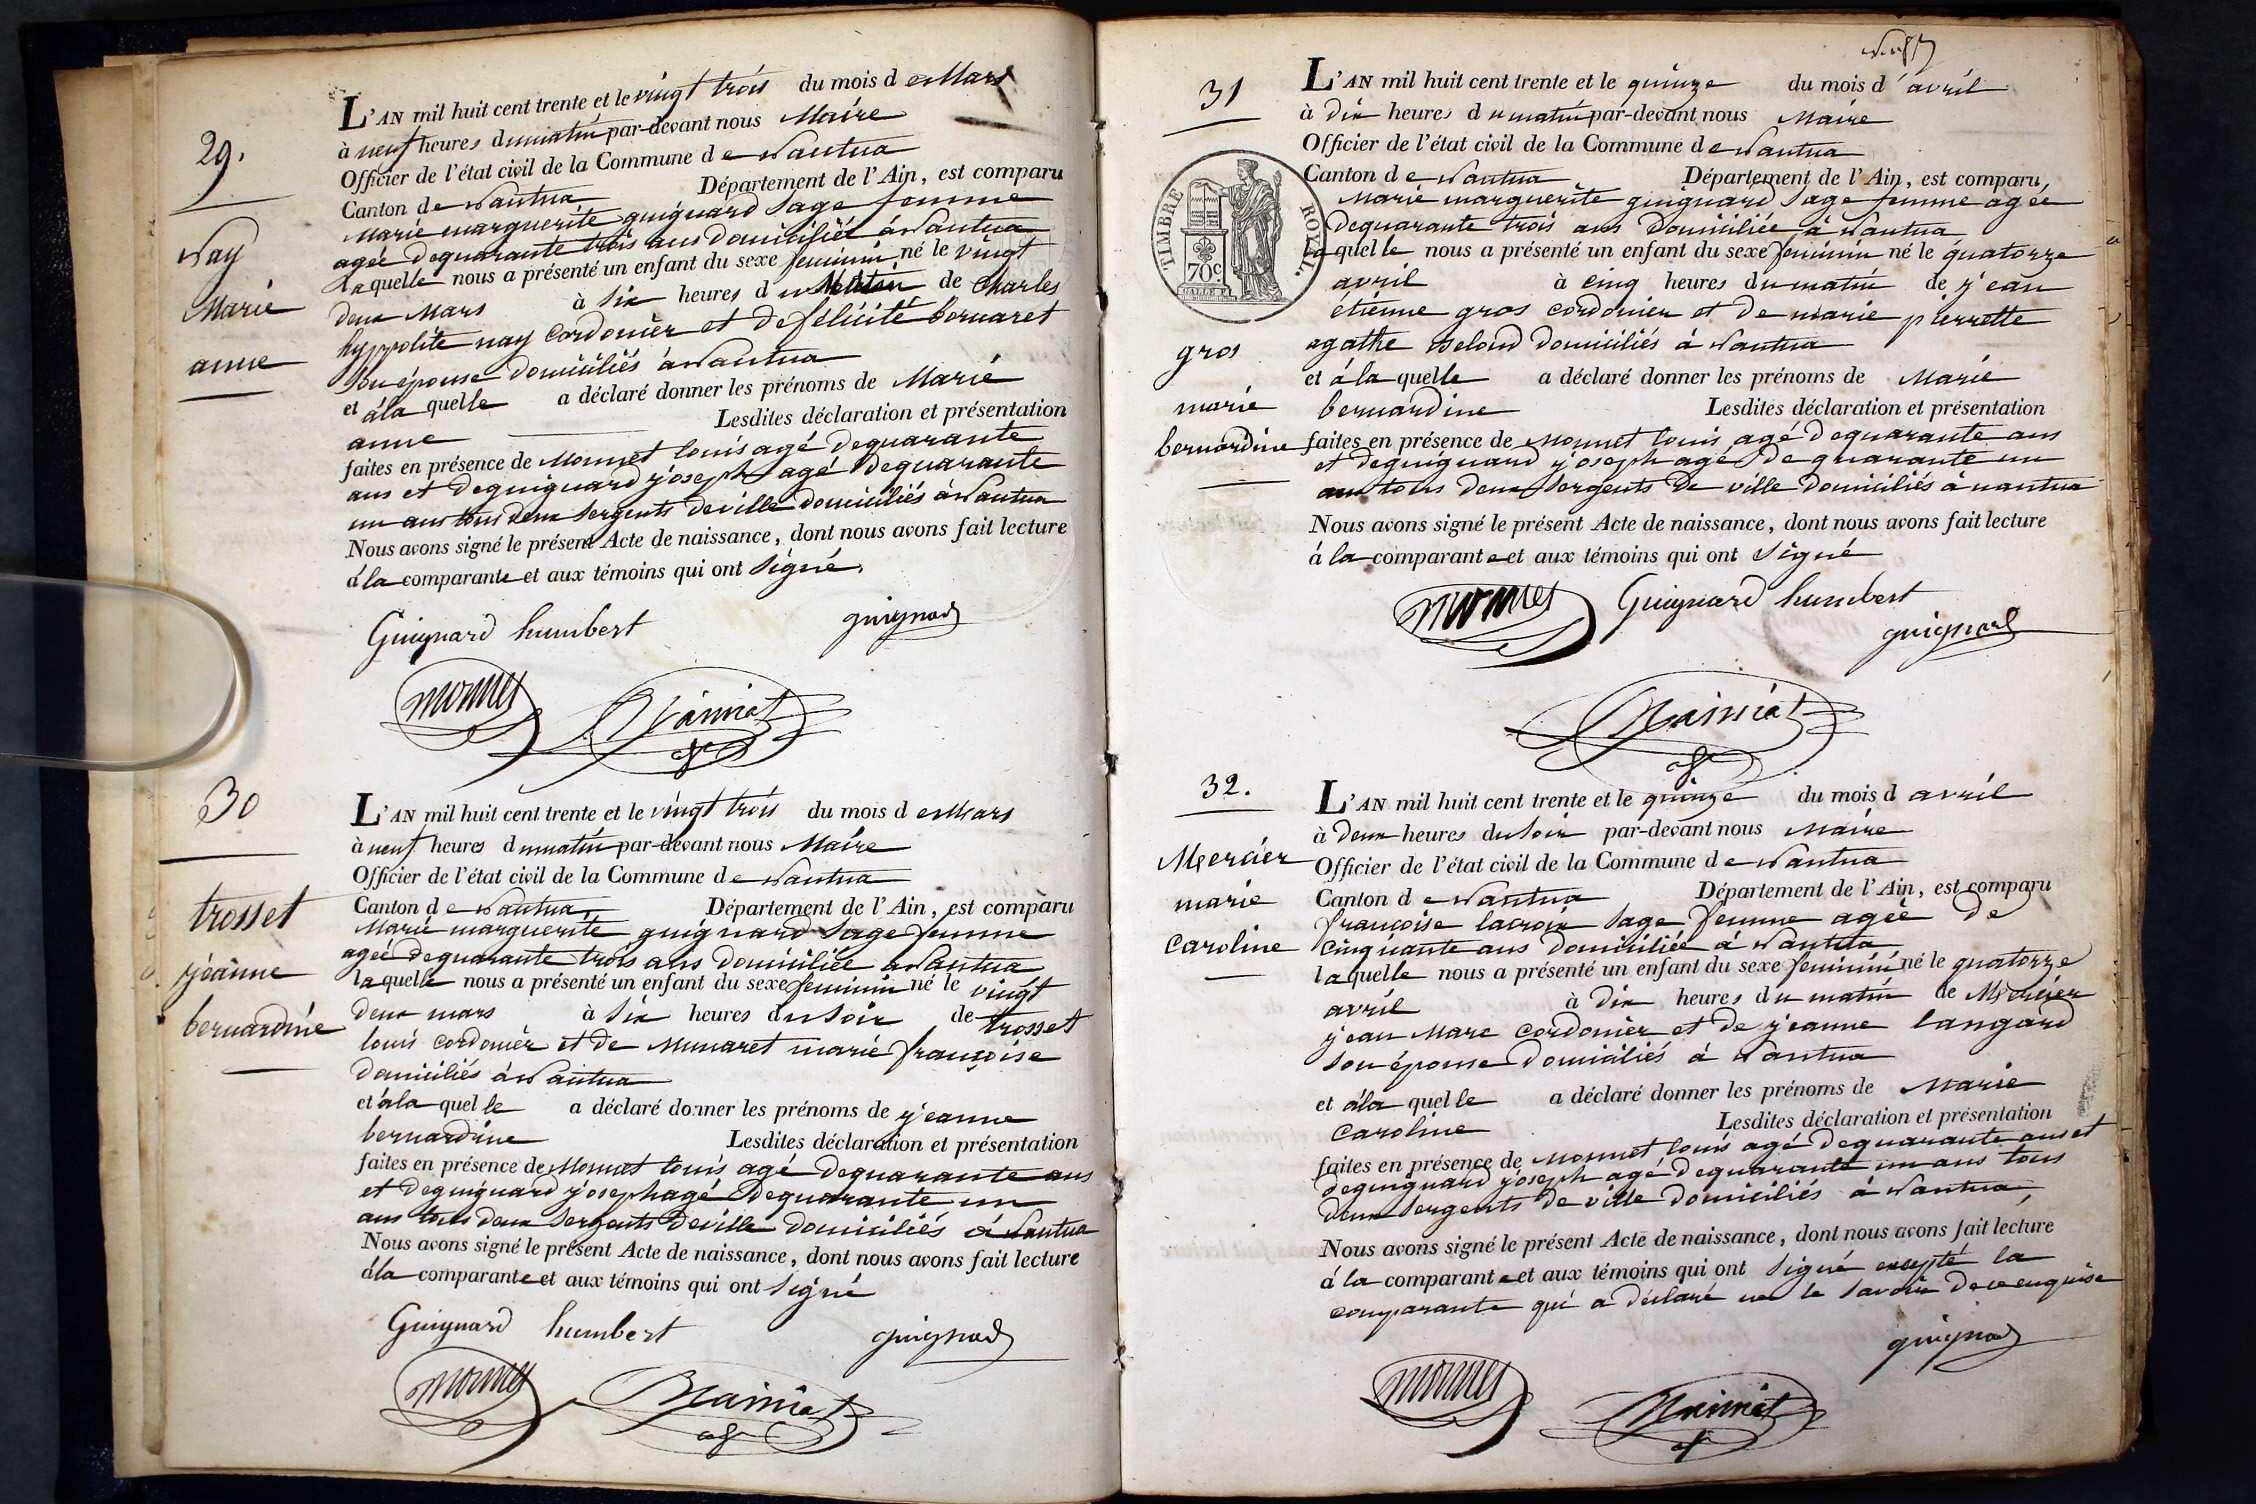 29.
Nay
Marie
anne
L'AN mil huit cent trente et le vingt trois du mois de Mars
à neuf heures du matin par-devant nous Maire
Officier de l'état civil de la Commune de Nantua
Canton de Nantua Département de l'Ain, est comparu
Marie marguerite guignard Sage femme
agée de quarante trois ans domiciliée à Nantua
laquelle nous a présenté un enfant du sexe feminin né le vingt
deux Mars à six heures du Matin de Charles
hyppolite nay cordonier et de félicité bornaret
son épouse domiciliés à Nantua
et à la quelle a déclaré donner les prénoms de Marie
anne Lesdites déclaration et présentation
faites en présence de Monnet louis agé de quarante
ans et de guignard joseph agé de quarante
un ans tous deux sergents de ville domiciliés à Nantua
Nous avons signé le présent Acte de naissance, dont nous avons fait lecture
à la comparante et aux témoins qui ont signé.
Guignard humbert guignard
monnet
30
trosset
jeanne
bernardine
L'AN mil huit cent trente et le vingt trois du mois de Mars
à neuf heures du matin par-devant nous Maire
Officier de l'état civil de la Commune de Nantua
Canton de Nantua, Département de l'Ain, est comparu
Marie marguerite guignard Sage femme
agée de quarante trois ans domiciliée a Nantua
laquelle nous a présenté un enfant du sexe feminin né le vingt
deux mars à six heures du soir de trosset
louis cordonier et de Munaret marie françoise
domiciliés à Nantua
et à la quelle a déclaré donner les prénoms de jeanne
bernardine Lesdites déclaration et présentation
faites en présence de Monnet louis agé de quarante ans
et de guignard joseph agé de quarante un
ans tous deux sergents de ville domiciliés à Nantua
Nous avons signé le présent Acte de naissance, dont nous avons fait lecture
à la comparante et aux témoins qui ont signé
Guignard humbert guignard
monnet
31
TIMBRE ROYAL.
70c
gros
marie
bernardine
L'AN mil huit cent trente et le quinze du mois d'avril
à dix heures du matin par-devant nous Maire
Officier de l'état civil de la Commune de Nantua
Canton de Nantua Département de l'Ain, est comparu,
Marie marguerite guignard sage femme agée
de quarante trois ans domiciliée à Nantua
laquelle nous a présenté un enfant du sexe feminin né le quatorze
avril à cinq heures du matin de jean
étienne gros cordonier et de marie pierrette
agathe domiciliés à Nantua
et à la quelle a déclaré donner les prénoms de Marie
bernardine Lesdites déclaration et présentation
faites en présence de Monnet louis agé de quarante ans
et de guignard joseph agé de quarante un
ans tous deux sergents de ville domiciliés à nantua
Nous avons signé le présent Acte de naissance, dont nous avons fait lecture
à la comparante et aux témoins qui ont signé
monnet Guignard humbert
guignard
32.
Mercier
marie
caroline
L'AN mil huit cent trente et le quinze du mois d avril
à deux heures du soir par-devant nous Maire
Officier de l'état civil de la Commune de Nantua
Canton de Nantua Département de l'Ain, est comparu
françoise lacroix sage femme agée de
cinquante ans domiciliée à Nantua
laquelle nous a présenté un enfant du sexe feminin né le quatorze
avril à dix heures du matin de Mercier
jean Marc cordonier et de jeanne langard
son épouse domiciliés à Nantua
et à la quelle a déclaré donner les prénoms de Marie
Caroline Lesdites déclaration et présentation
faites en présence de Monnet louis agé de quarante ans et
de guignard joseph agé de quarante un ans tous
deux sergents de ville domiciliés à Nantua,
Nous avons signé le présent Acte de naissance, dont nous avons fait lecture
à la comparante et aux témoins qui ont signé excepté la
comparante qui a déclaré ne le savoir de ce enquise
guignard
monnet